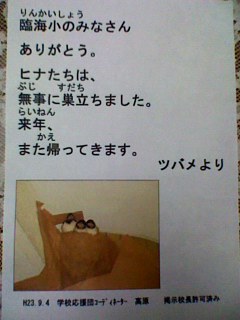 りんかいしょう
臨海小のみなさん
ありがとう。
ヒナたちは、
ぶじ すだち
無事に巣立ちました。
らいねん
来年、
かえ
また帰ってきます。
ツバメより
H23.9.4 学校応援団コーディネーター 高原 掲示校長許可済み